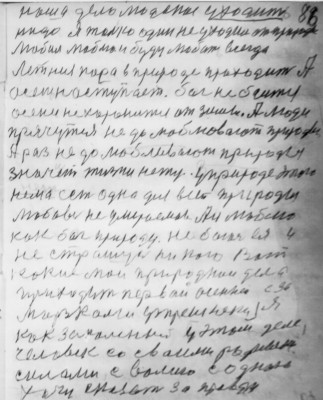 наша дело людское уходить 88
надо я толко один не ухожу от природы
Любил люблю и буду любит всегда
Летния пора в природе проходит А
осен наступает. бог не боится
осени не хоронится от зимы. А люди
прячутся недолюбливают природу
А раз не долюбливают природу
значит жизни нету. У природе этого
нема ест одна для всей природы
любовь не умираемая. Я люблю
как бог природу. не боюсь ея и
не страшусь ни кого Вот
какие мои природные дела
приходит первой осенни
утренник, Я
как закаленный у этом деле
человек со своими
силами с волею с одною
Хочу сказат за правду